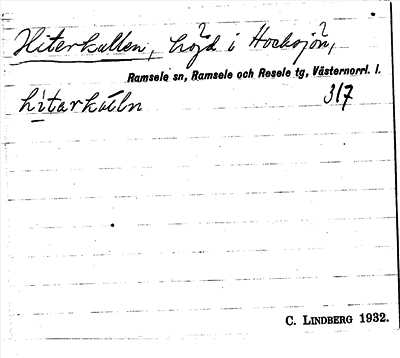 Hiterkullen, höjd i Hocksjön,
Ramsele sn, Ramsele och Resele tg, Västernorrl. l.
hitarkúln 317
C. LINDBERG 1932.